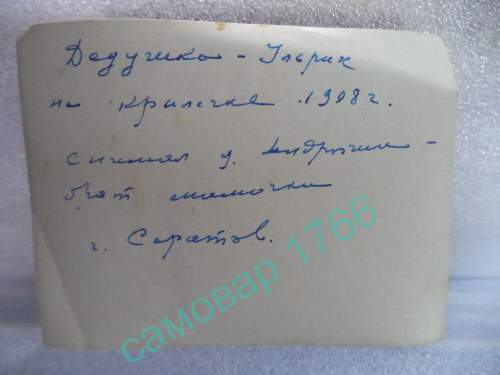 Дедушка -
на крылечке 1908 г.
снимал д. Андрюша -
брат мамочки
г. Саратов.
самовар 1766